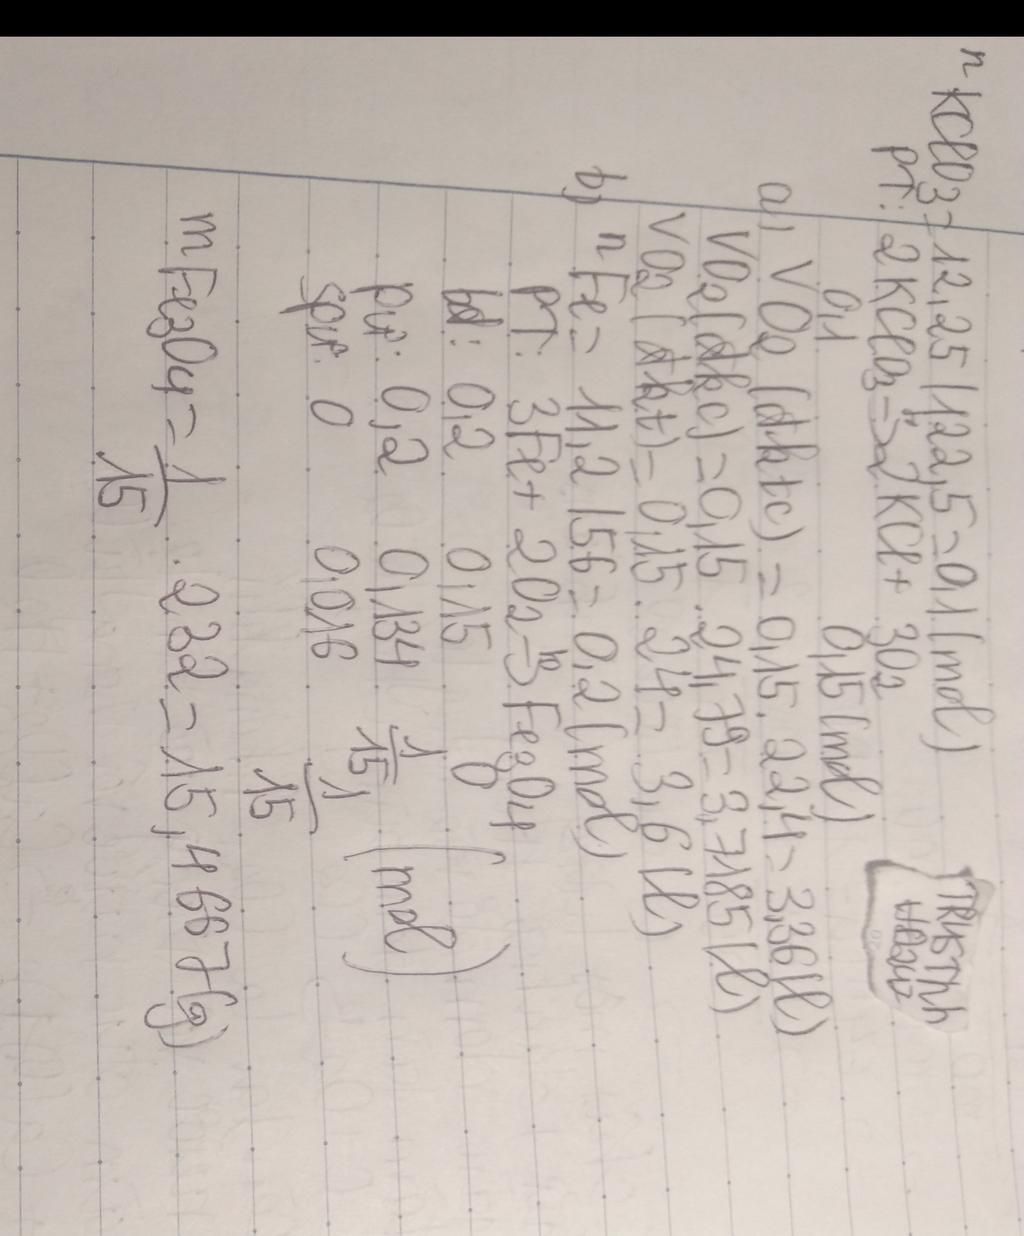 n KClO3 = 12,25 / 122,5 = 0,1 (mol)
PT: 2KClO3 -> 2KCl + 3O2
0,1 0,15 (mol)
a, VO2 (đktc) = 0,15. 22,4 = 3,36 (l)
VO2 (đkc) = 0,15 . 24,79 = 3,7185 (l)
VO2 (đkt) = 0,15 . 24 = 3,6 (l)
b, n Fe = 11,2 / 56 = 0,2 (mol)
PT: 3Fe + 2O2 -> Fe3O4
bđ: 0,2 0,15 0
pư: 0,2 0,134 1/15 (mol)
spư: 0 0,016 1/15
m Fe3O4 = 1/15 . 232 = 15,4667 (g)